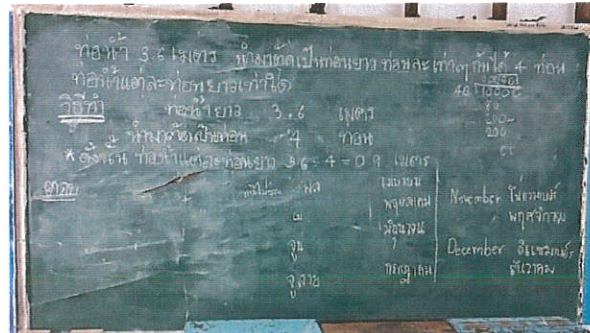 ท่อน้ำ 3.6 เมตร นำมาตัดเป็นท่อนยาว ท่อนละ เท่าๆ กันได้ 4 ท่อน
ท่อน้ำแต่ละท่อนยาวเท่าใด
วิธีทำ ท่อน้ำยาว 3.6 เมตร
นำมาตัดเป็นท่อน 4 ท่อน
* ดังนั้น ท่อน้ำแต่ละท่อนยาว 3.6 ÷ 4 = 0.9 เมตร
ตอบ
เมษายน
เม พฤษภาคม
มิถุนายน
จูน
จูลาย กรกฎาคม
November โนเวมเบอร์
พฤศจิกายน
December ดีเซมเบอร์
ธันวาคม
40
80
200
200